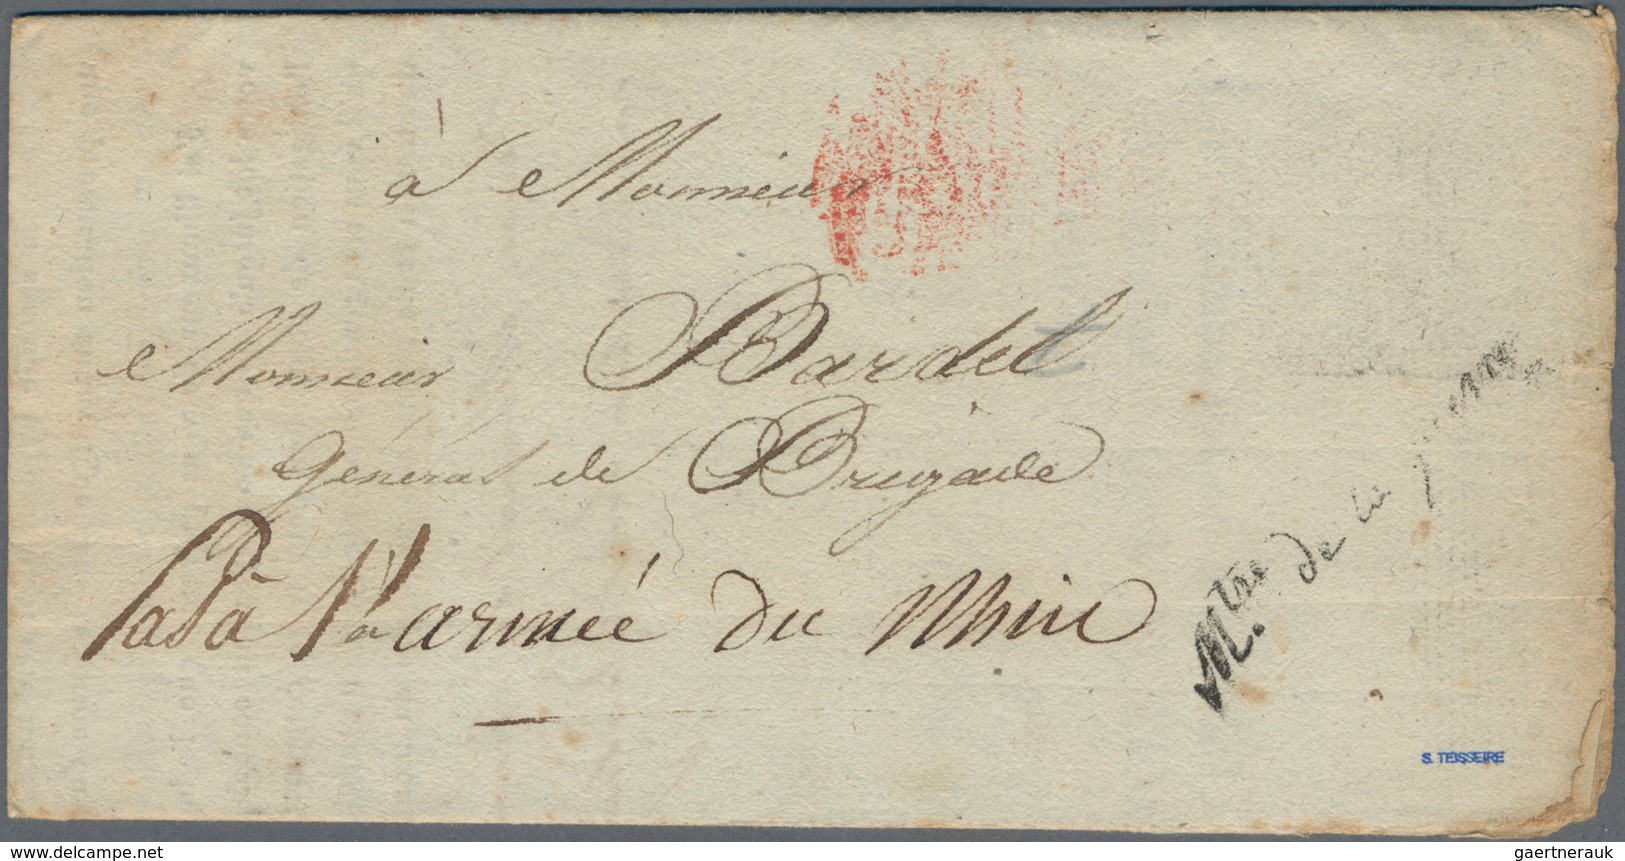 à Monsieur
Monsieur Bardel
Général de Brigade
à l'armée du Rhin
M.tre de la
S. TEISSEIRE
www.delcampe.net
gaertnerauk